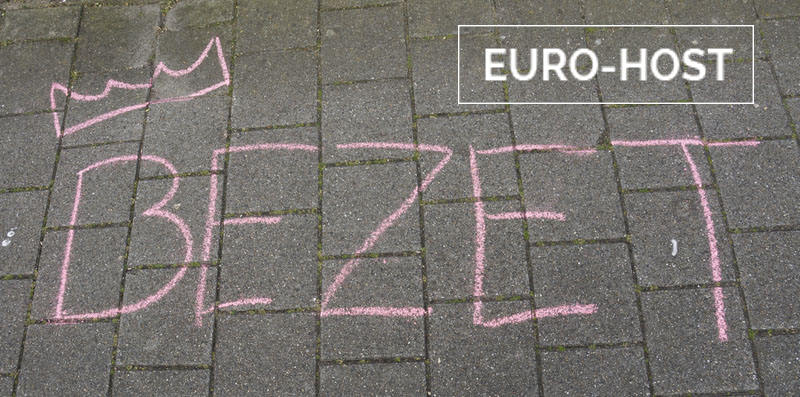 EURO-HOST
BEZET